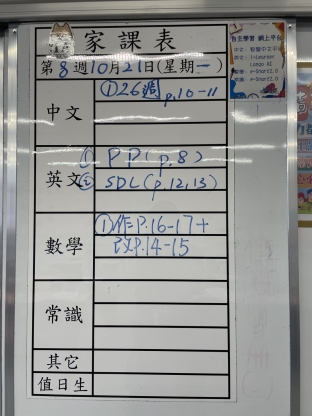 家課表
第8週10月21日(星期一)
中文
①26週 p.10-11
英文
① PP(p.8)
② SDL(p.12,13)
數學
①作P.16-17+
改P.14-15
常識
其它
值日生
自主學習 網上平台